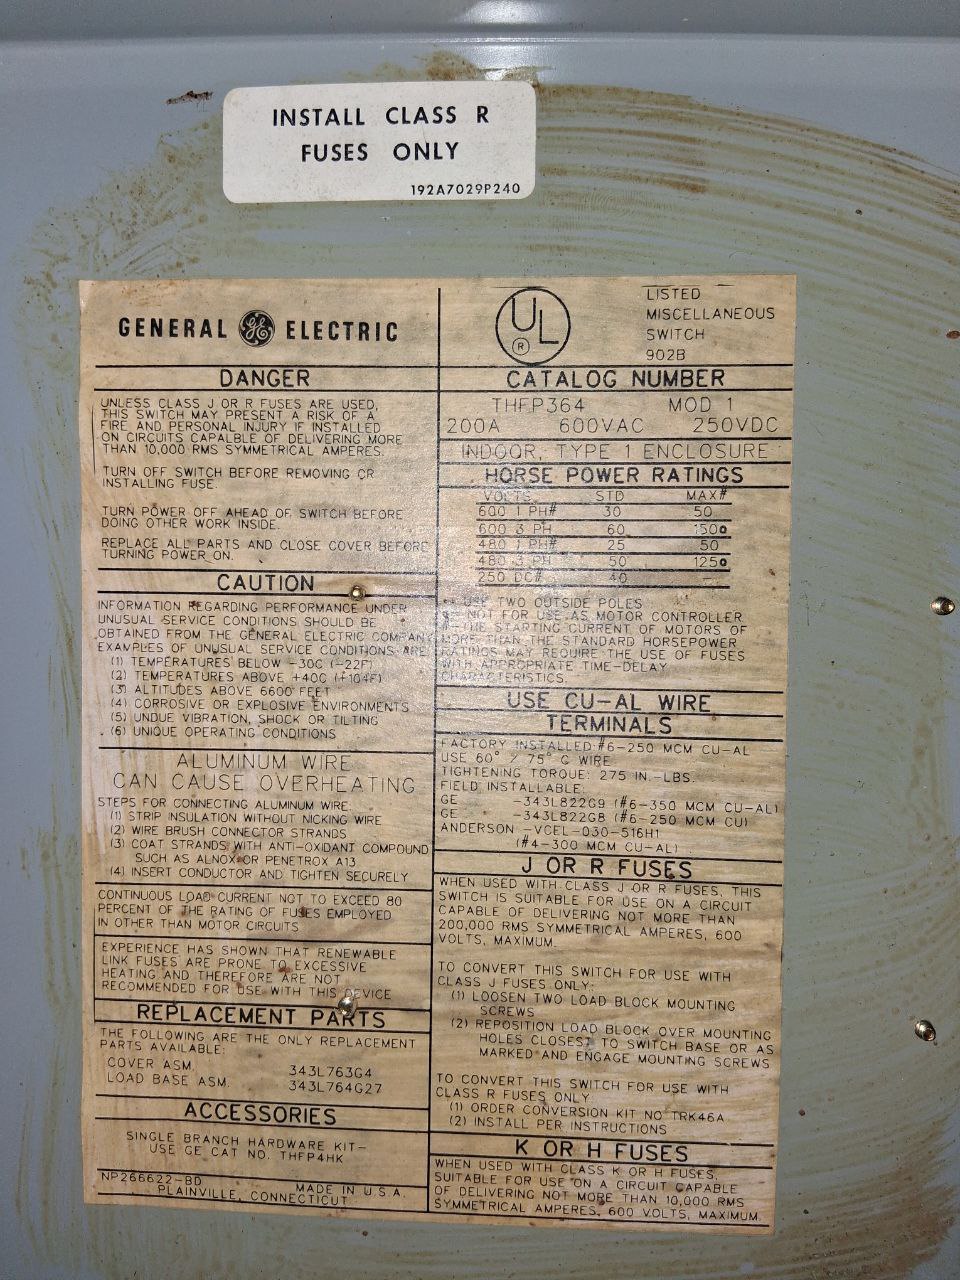 INSTALL CLASS R
FUSES ONLY
192A7029P240
GENERAL GE ELECTRIC
DANGER
UNLESS CLASS J OR R FUSES ARE USED,
THIS SWITCH MAY PRESENT A RISK OF A
FIRE AND PERSONAL INJURY IF INSTALLED
ON CIRCUITS CAPABLE OF DELIVERING MORE
THAN 10,000 RMS SYMMETRICAL AMPERES.
TURN OFF SWITCH BEFORE REMOVING OR
INSTALLING FUSE.
TURN POWER OFF AHEAD OF SWITCH BEFORE
DOING OTHER WORK INSIDE.
REPLACE ALL PARTS AND CLOSE COVER BEFORE
TURNING POWER ON.
CAUTION
INFORMATION REGARDING PERFORMANCE UNDER
UNUSUAL SERVICE CONDITIONS SHOULD BE
OBTAINED FROM THE GENERAL ELECTRIC COMPANY
EXAMPLES OF UNUSUAL SERVICE CONDITIONS ARE
(1) TEMPERATURES BELOW -30C (-22F)
(2) TEMPERATURES ABOVE +40C (+104F)
(3) ALTITUDES ABOVE 6600 FEET
(4) CORROSIVE OR EXPLOSIVE ENVIRONMENTS
(5) UNDUE VIBRATION, SHOCK OR TILTING
(6) UNIQUE OPERATING CONDITIONS
ALUMINUM WIRE
CAN CAUSE OVERHEATING
STEPS FOR CONNECTING ALUMINUM WIRE:
(1) STRIP INSULATION WITHOUT NICKING WIRE
(2) WIRE BRUSH CONNECTOR STRANDS
(3) COAT STRANDS WITH ANTI-OXIDANT COMPOUND
SUCH AS ALNOX OR PENETROX A13
(4) INSERT CONDUCTOR AND TIGHTEN SECURELY
CONTINUOUS LOAD CURRENT NOT TO EXCEED 80
PERCENT OF THE RATING OF FUSES EMPLOYED
IN OTHER THAN MOTOR CIRCUITS
EXPERIENCE HAS SHOWN THAT RENEWABLE
LINK FUSES ARE PRONE TO EXCESSIVE
HEATING AND THEREFORE ARE NOT
RECOMMENDED FOR USE WITH THIS DEVICE
REPLACEMENT PARTS
THE FOLLOWING ARE THE ONLY REPLACEMENT
PARTS AVAILABLE:
COVER ASM. 343L763G4
LOAD BASE ASM. 343L764G27
ACCESSORIES
SINGLE BRANCH HARDWARE KIT-
USE GE CAT NO. THFP4HK
NP266622-BD MADE IN U.S.A.
PLAINVILLE, CONNECTICUT
UL ®
LISTED
MISCELLANEOUS
SWITCH
902B
CATALOG NUMBER
THFP364 MOD 1
200A 600VAC 250VDC
INDOOR, TYPE 1 ENCLOSURE
HORSE POWER RATINGS
VOLTS STD MAX#
600 1 PH# 30 50
600 3 PH 60 150
480 1 PH# 25 50
480 3 PH 50 125
250 DC# 40 —
USE TWO OUTSIDE POLES
NOT FOR USE AS MOTOR CONTROLLER
THE STARTING CURRENT OF MOTORS OF
MORE THAN THE STANDARD HORSEPOWER
RATINGS MAY REQUIRE THE USE OF FUSES
WITH APPROPRIATE TIME-DELAY
CHARACTERISTICS.
USE CU-AL WIRE
TERMINALS
FACTORY INSTALLED:#6-250 MCM CU-AL
USE 60° / 75° C WIRE
TIGHTENING TORQUE: 275 IN.-LBS.
FIELD INSTALLABLE:
GE -343L822G9 (#6-350 MCM CU-AL)
GE -343L822G8 (#6-250 MCM CU)
ANDERSON -VCEL-030-516H1
(#4-300 MCM CU-AL)
J OR R FUSES
WHEN USED WITH CLASS J OR R FUSES, THIS
SWITCH IS SUITABLE FOR USE ON A CIRCUIT
CAPABLE OF DELIVERING NOT MORE THAN
200,000 RMS SYMMETRICAL AMPERES, 600
VOLTS, MAXIMUM.
TO CONVERT THIS SWITCH FOR USE WITH
CLASS J FUSES ONLY:
(1) LOOSEN TWO LOAD BLOCK MOUNTING
SCREWS
(2) REPOSITION LOAD BLOCK OVER MOUNTING
HOLES CLOSEST TO SWITCH BASE OR AS
MARKED AND ENGAGE MOUNTING SCREWS
TO CONVERT THIS SWITCH FOR USE WITH
CLASS R FUSES ONLY
(1) ORDER CONVERSION KIT NO TRK46A
(2) INSTALL PER INSTRUCTIONS
K OR H FUSES
WHEN USED WITH CLASS K OR H FUSES,
SUITABLE FOR USE ON A CIRCUIT CAPABLE
OF DELIVERING NOT MORE THAN 10,000 RMS
SYMMETRICAL AMPERES, 600 VOLTS, MAXIMUM.